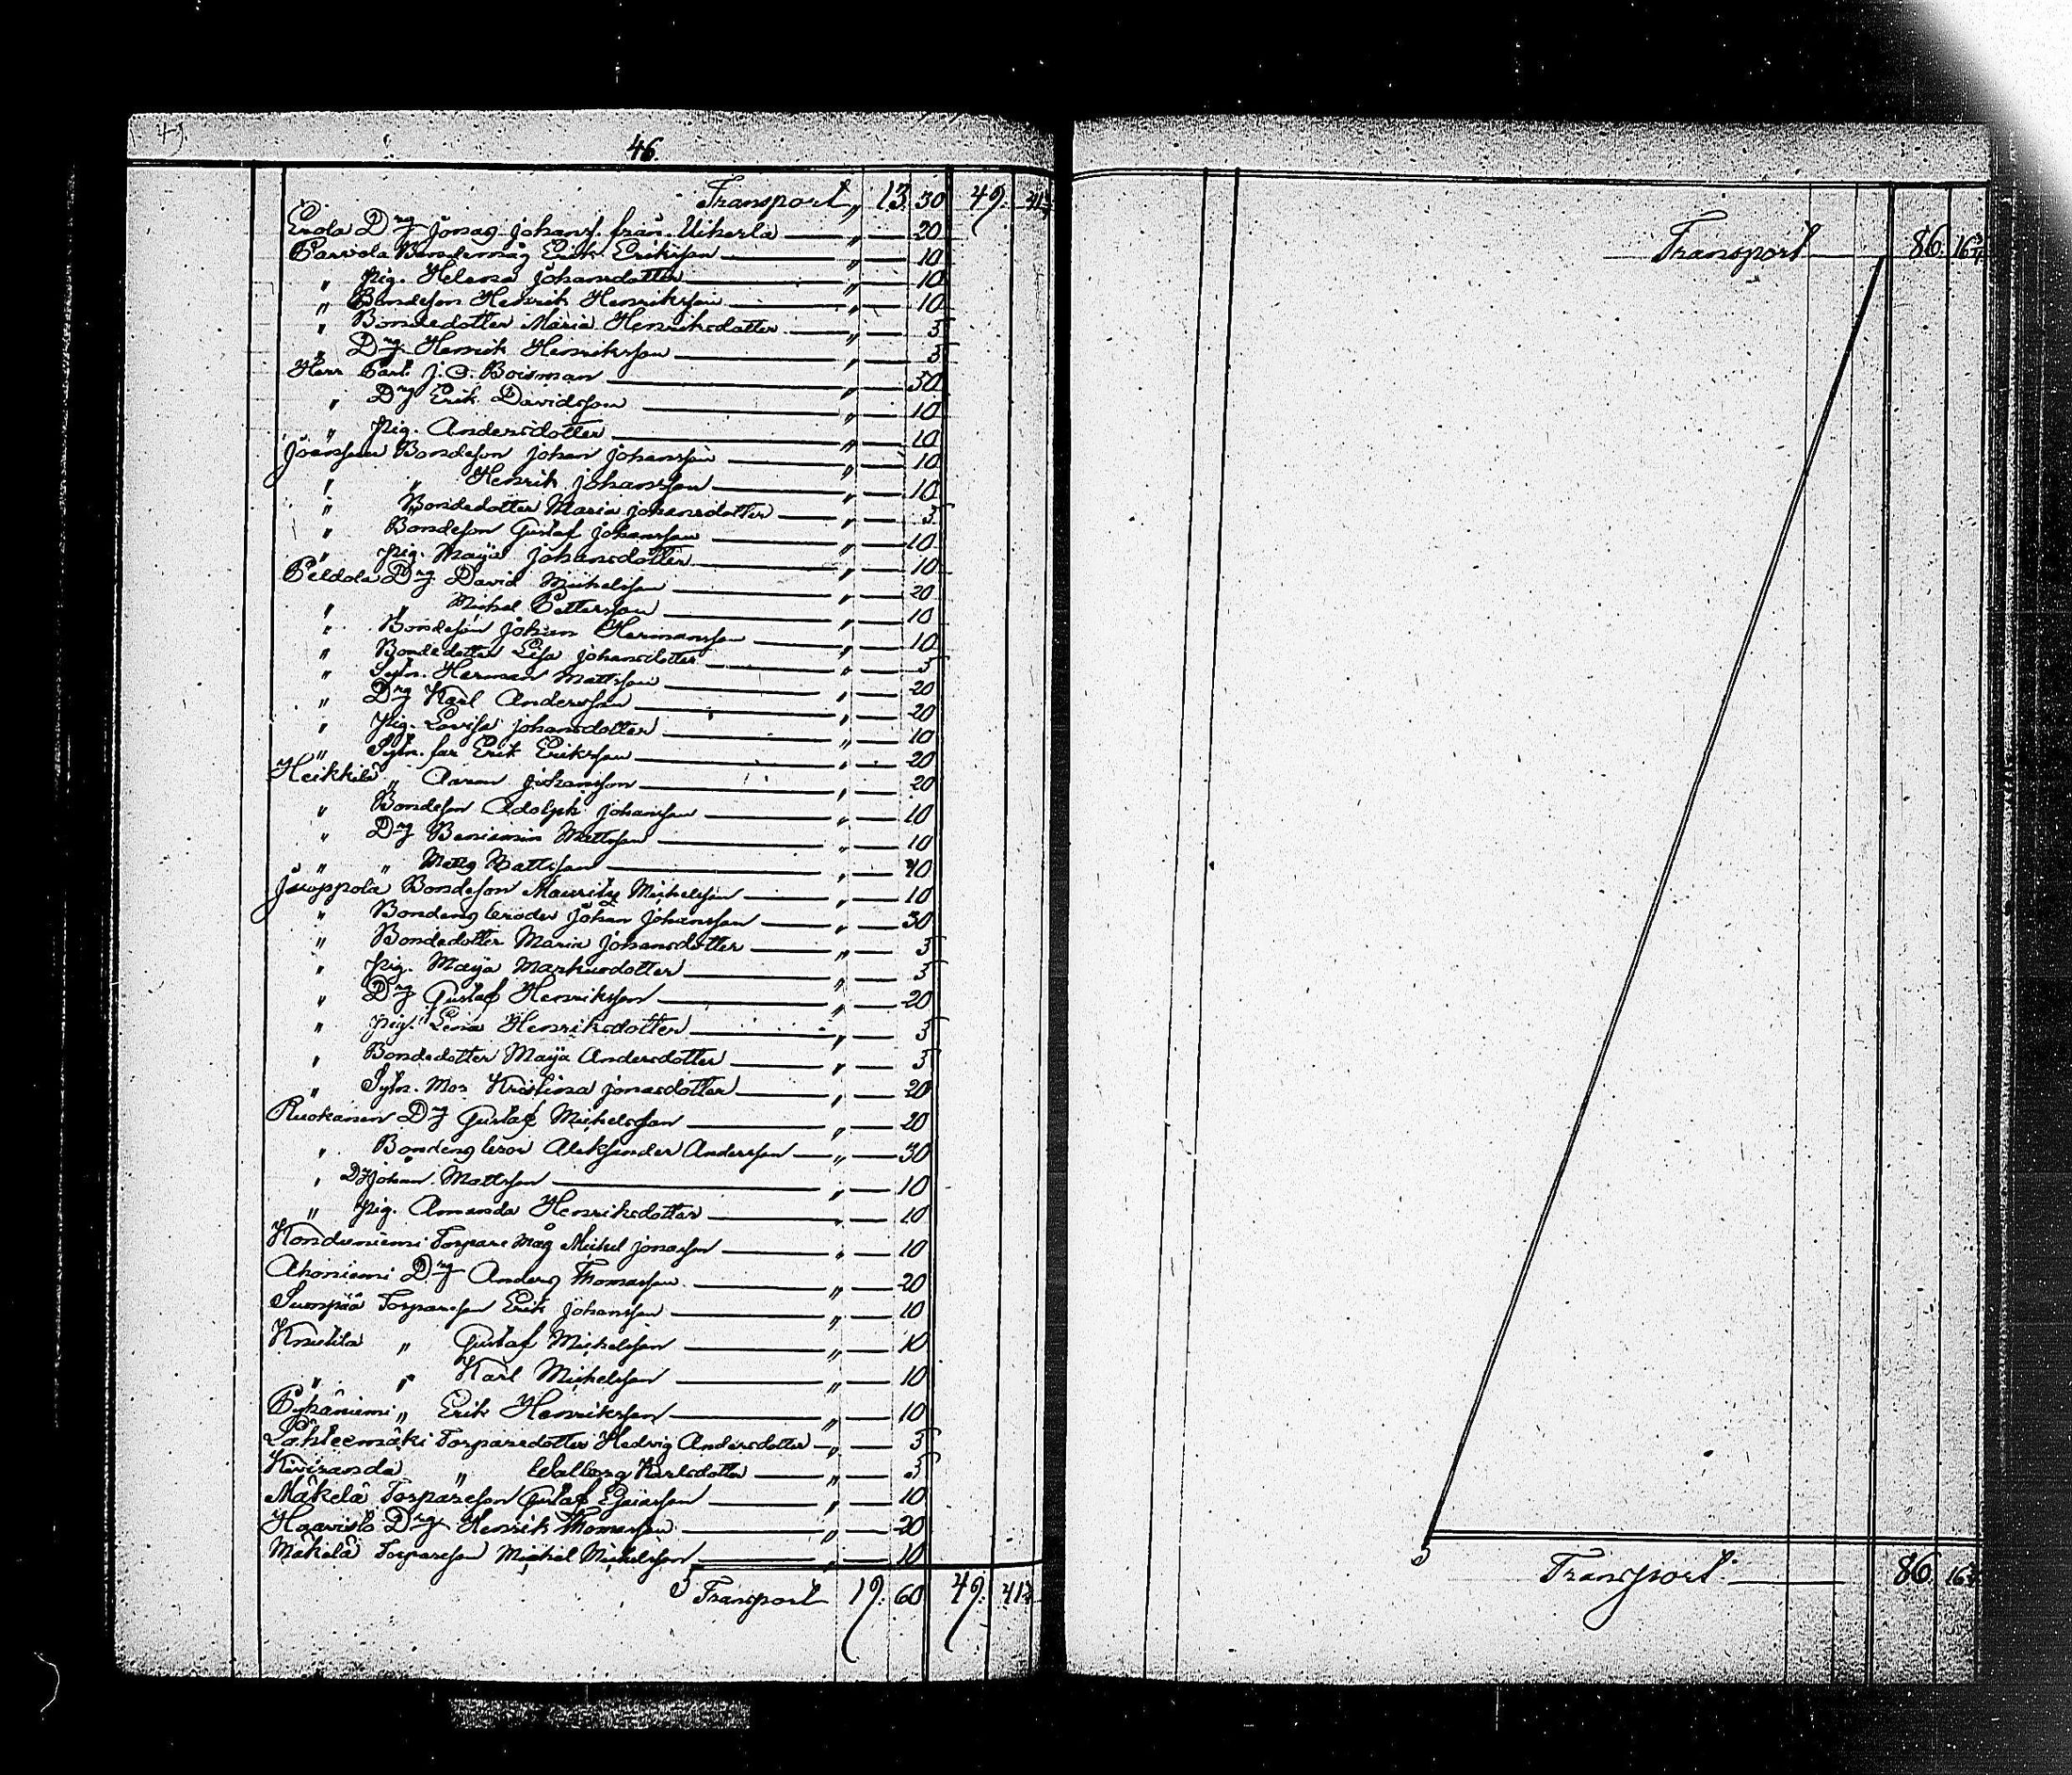 49
46.
Transport „ 13. 30 49. 41½
Erola Drg Jonas Johans. från Uikerla „ 20
Parvela Bondemåg Erik Eriksson „ 10
„ Pig. Helena Johansdotter „ 10
„ Bondeson Henrik Henriksson „ 10
„ Bondedotter Maria Henriksdotter „ 5
„ Drg Henrik Henriksson „ 5
Herr Carl J. Boisman „ 50
„ Drg Erik Davidsson „ 10
„ Pig. Andersdotter „ 10
Bondeson Johan Johansson „ 10
„ „ Henrik Johansson „ 10
„ Bondedotter Maria Johansdotter „ 5
„ Bondeson Gustaf Johansson „ 10
„ Pig. Maija Johansdotter „ 10
Peldola Drg David Michelsson „ 20
„ „ Michel Pettersson „ 10
„ Bondeson Johan Hermansson „ 10
„ Bondedotter Lisa Johansdotter „ 5
„ Sytn. Herman Mattsson „ 20
„ Drg Karl Andersson „ 20
„ Pig. Lovisa Johansdotter „ 10
„ Sytn. far Erik Eriksson „ 20
Heikkilä „ Aaron Johansson „ 20
„ Bondeson Adolph Johansson „ 10
„ Drg Beniamin Mattsson „ 10
„ „ Matts Mattsson „ 40
Juoppola Bondeson Mauritz Michelsson „ 10
„ Bondens broder Johan Johansson „ 30
„ Bondedotter Maria Johansdotter „ 5
„ Pig. Maija Markusdotter „ 5
„ Drg Gustaf Henriksson „ 20
„ Pig. Lena Henriksdotter „ 5
„ Bondedotter Maija Andersdotter „ 5
„ Sytn. Mor Kristina Jonasdotter „ 20
Ruokanen Drg Gustaf Michelsson „ 20
„ Bondens bror Aleksander Andersson „ 30
„ Drg Johan Mattsson „ 10
„ Pig. Amanda Henriksdotter „ 10
Konduniemi Torpare måg Michel Jonasson „ 10
Ahoniemi Drg Anders Thomasson „ 20
Suonpää Torpareson Erik Johansson „ 10
Knutila „ Gustaf Michelsson „ 10
„ „ Karl Michelsson „ 10
Pyhäniemi „ Erik Henriksson „ 10
Lähteemäki Torparedotter Hedvig Andersdotter „ 5
Kiviranda „ Walborg Karlsdotter „ 5
Mäkelä Torpareson Gustaf Esaiasson „ 10
Haavisto Drg Henrik Thomasson „ 20
Mäkelä Torpareson Michel Michelsson „ 10
Transport 19. 60 49. 41½
Transport 86. 16¾
Transport 86. 16¾